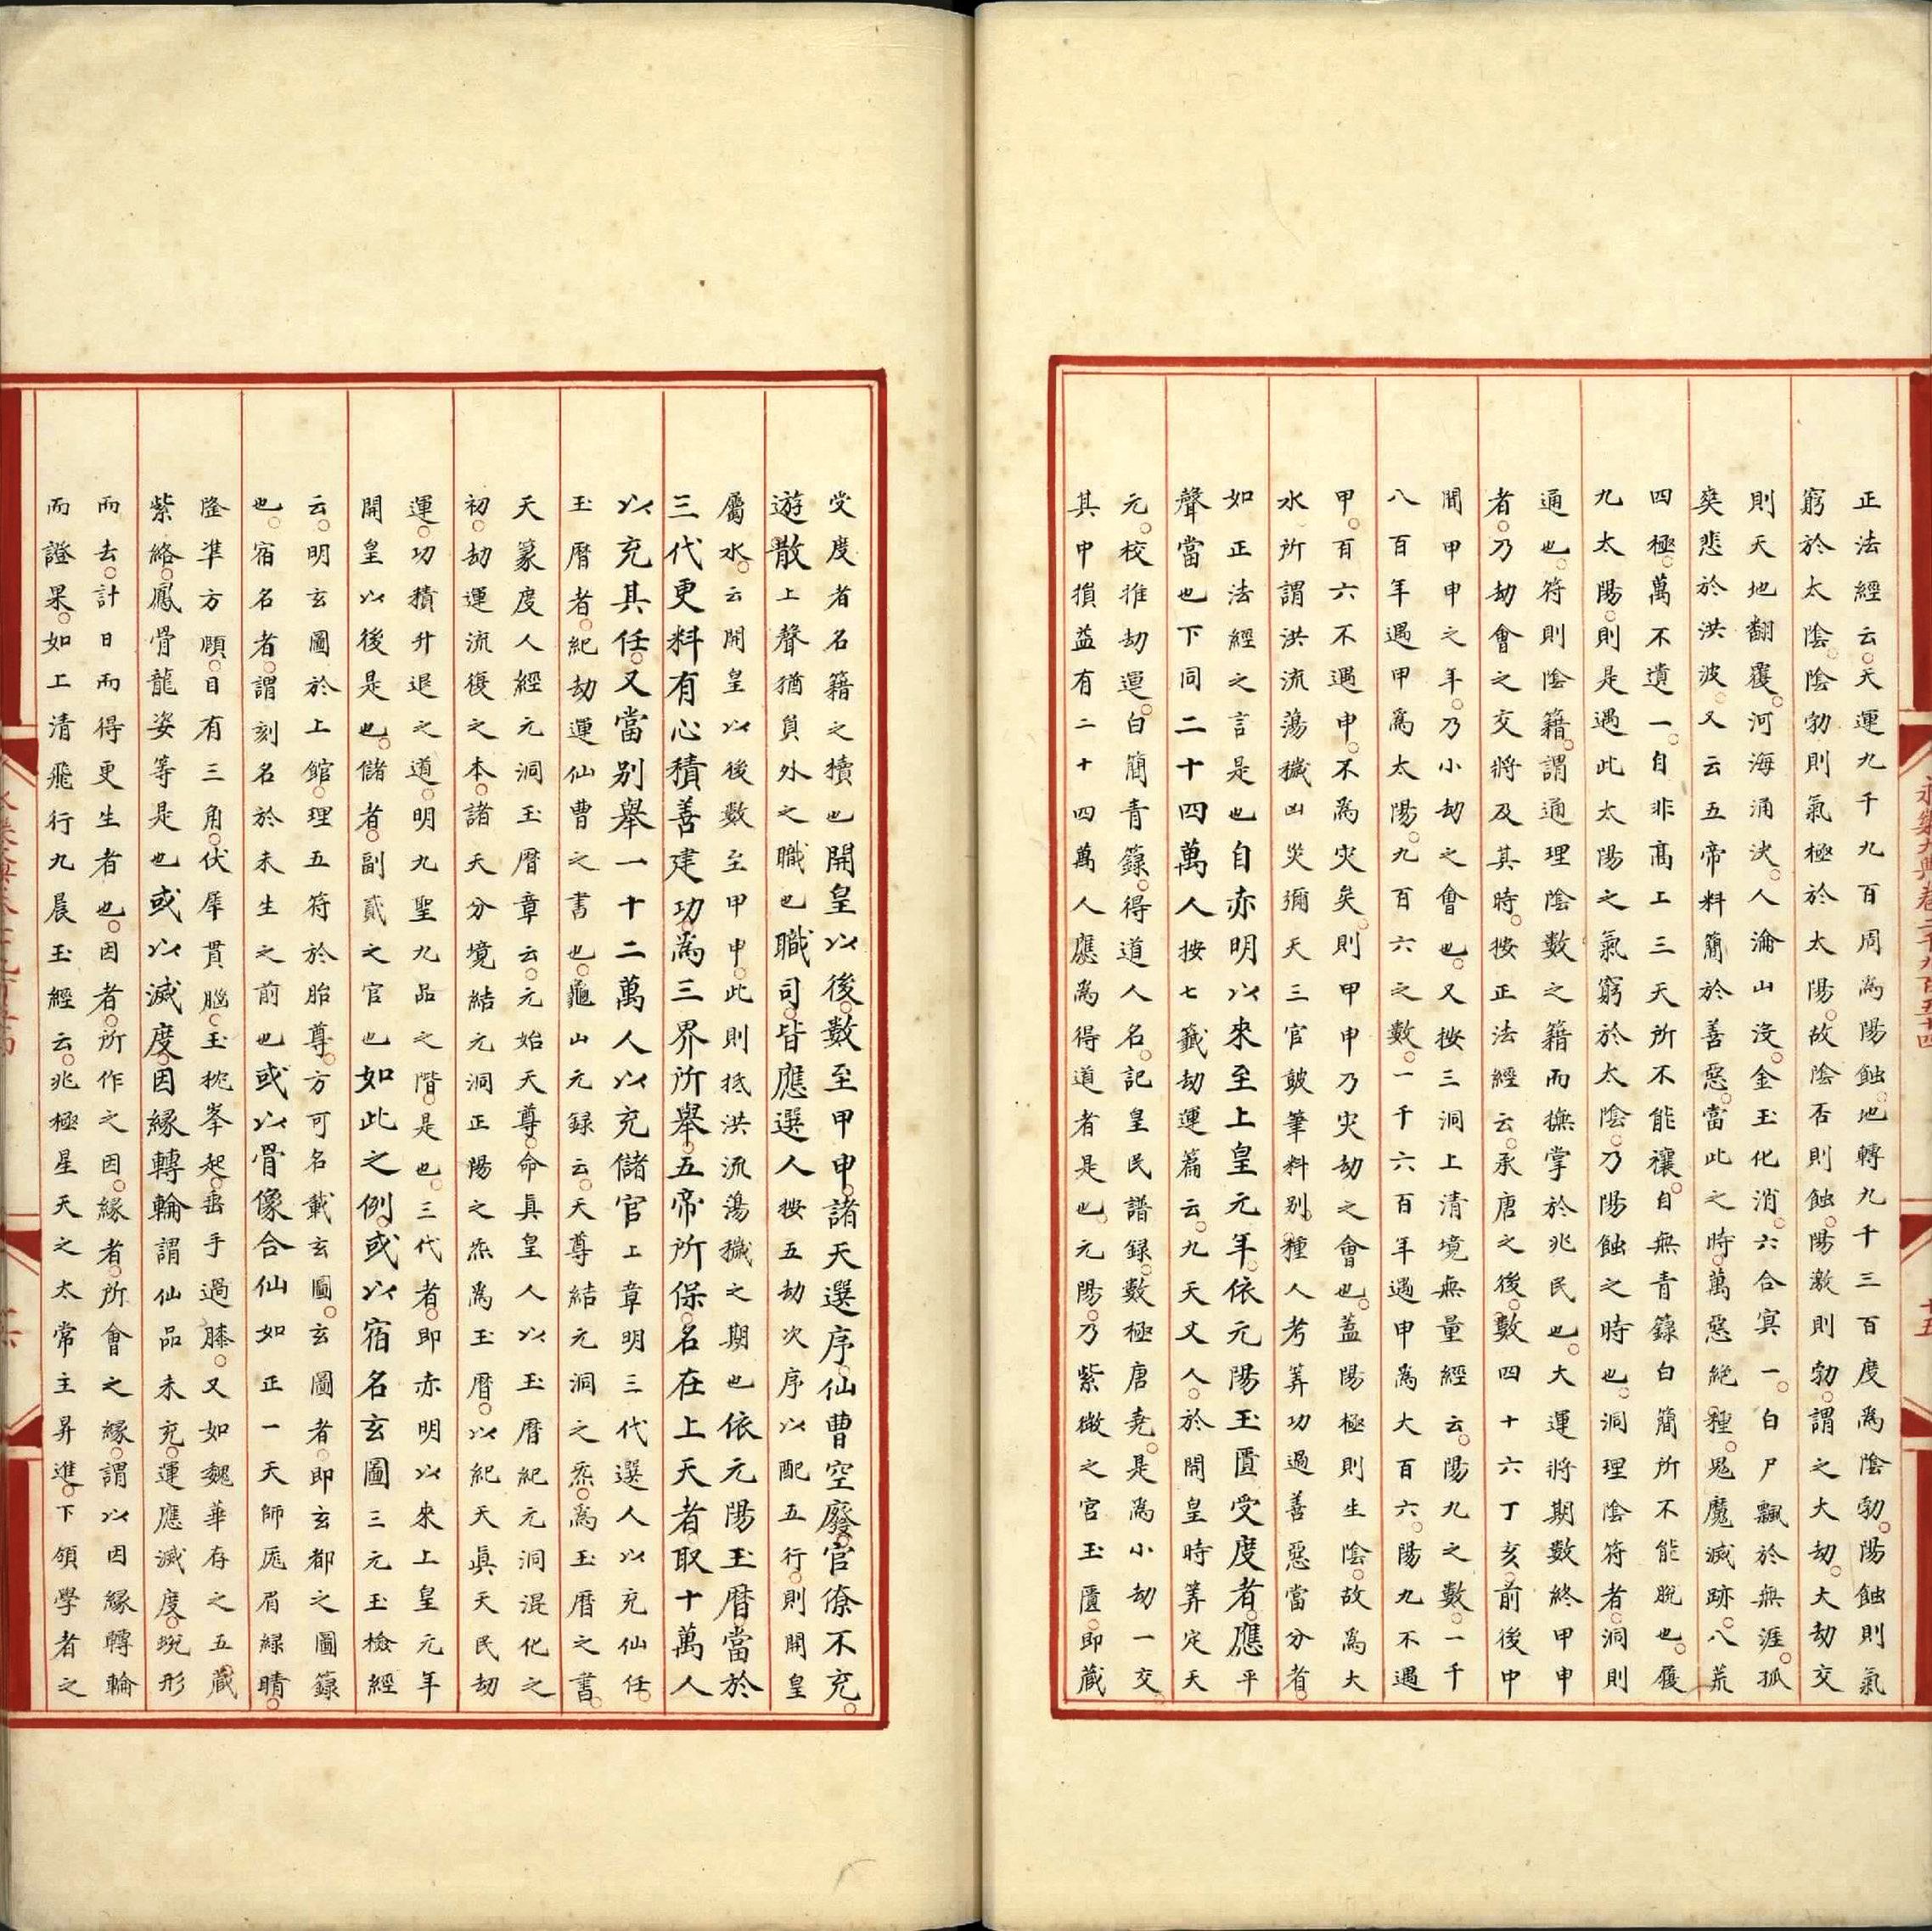 正法經云天運九千九百周爲陽蝕地轉九千三百度爲陰勃陽蝕則氣
窮於太陰陰勃則氣極於太陽故陰否則蝕陽激則勃謂之大劫大劫交
則天地翻覆河海涌決人淪山沒金玉化消六合冥一白尸飄於無涯孤
爽悲於洪波又云五帝料簡於善惡當此之時萬惡絕種鬼魔滅跡八荒
四極萬不遺一自非高上三天所不能禳自無青籙白簡所不能脫也履
九太陽則是遇此太陽之氣窮於太陰乃陽蝕之時也洞理陰符者洞則
通也符則陰籍謂通理陰數之籍而撫掌於兆民也大運將期數終甲申
者乃劫會之交將及其時按正法經云承唐之後數四十六丁亥前後中
間甲申之年乃小劫之會也又按三洞上清境無量經云陽九之數一千
八百年遇甲爲太陽九百六之數一千六百年遇申爲大百六陽九不遇
甲百六不遇申不爲灾矣則甲申乃灾劫之會也蓋陽極則生陰故爲大
水所謂洪流蕩穢凶災彌天三官皷筆料別種人考筭功過善惡當分者
如正法經之言是也自亦明以來至上皇元年依元陽玉匱受度者應平
聲當也下同二十四萬人按七籤劫運篇云九天丈人於開皇時筭定天
元校推劫運白簡青籙得道人名記皇民譜録數極唐堯是爲小劫一交
其中損益有二十四萬人應爲得道者是也元陽乃紫微之宮玉匱即藏
受度者名籍之櫝也開皇以後數至甲申諸天選序仙曹空廢官僚不充
遊散上聲猶員外之職也職司皆應選人按五劫次序以配五行則開皇
屬水云開皇以後數至甲申此則抵洪流蕩穢之期也依元陽玉曆當於
三代更料有心積善建功爲三界所舉五帝所保名在上天者取十萬人
以充其任又當別舉一十二萬人以充儲官上章明三代選人以充仙任
玉曆者紀劫運仙曹之書也龜山元録云天尊結元洞之炁爲玉曆之書
天篆度人經元洞玉曆章云元始天尊命真皇人以玉曆紀元洞混化之
初劫運流復之本諸天分境結元洞正陽之炁爲玉曆以紀天眞天民劫
運功積升退之道明九聖九品之階是也三代者即赤明以來上皇元年
開皇以後是也儲者副貳之官也如此之例或以宿名玄圖三元玉檢經
云明玄圖於上館理五符於胎尊方可名載玄圖玄圖者即玄都之圖籙
也宿名者謂刻名於未生之前也或以骨像合仙如正一天師厖眉綠睛
隆準方頤目有三角伏犀貫腦玉枕峯起垂手過膝又如魏華存之五藏
紫絡鳳骨龍姿等是也或以滅度因緣轉輪謂仙品未充運應滅度蛻形
而去計日而得更生者也因者所作之因緣者所會之緣謂以因緣轉輪
而證果如上清飛行九晨玉經云兆極星天之太常主昇進下領學者之